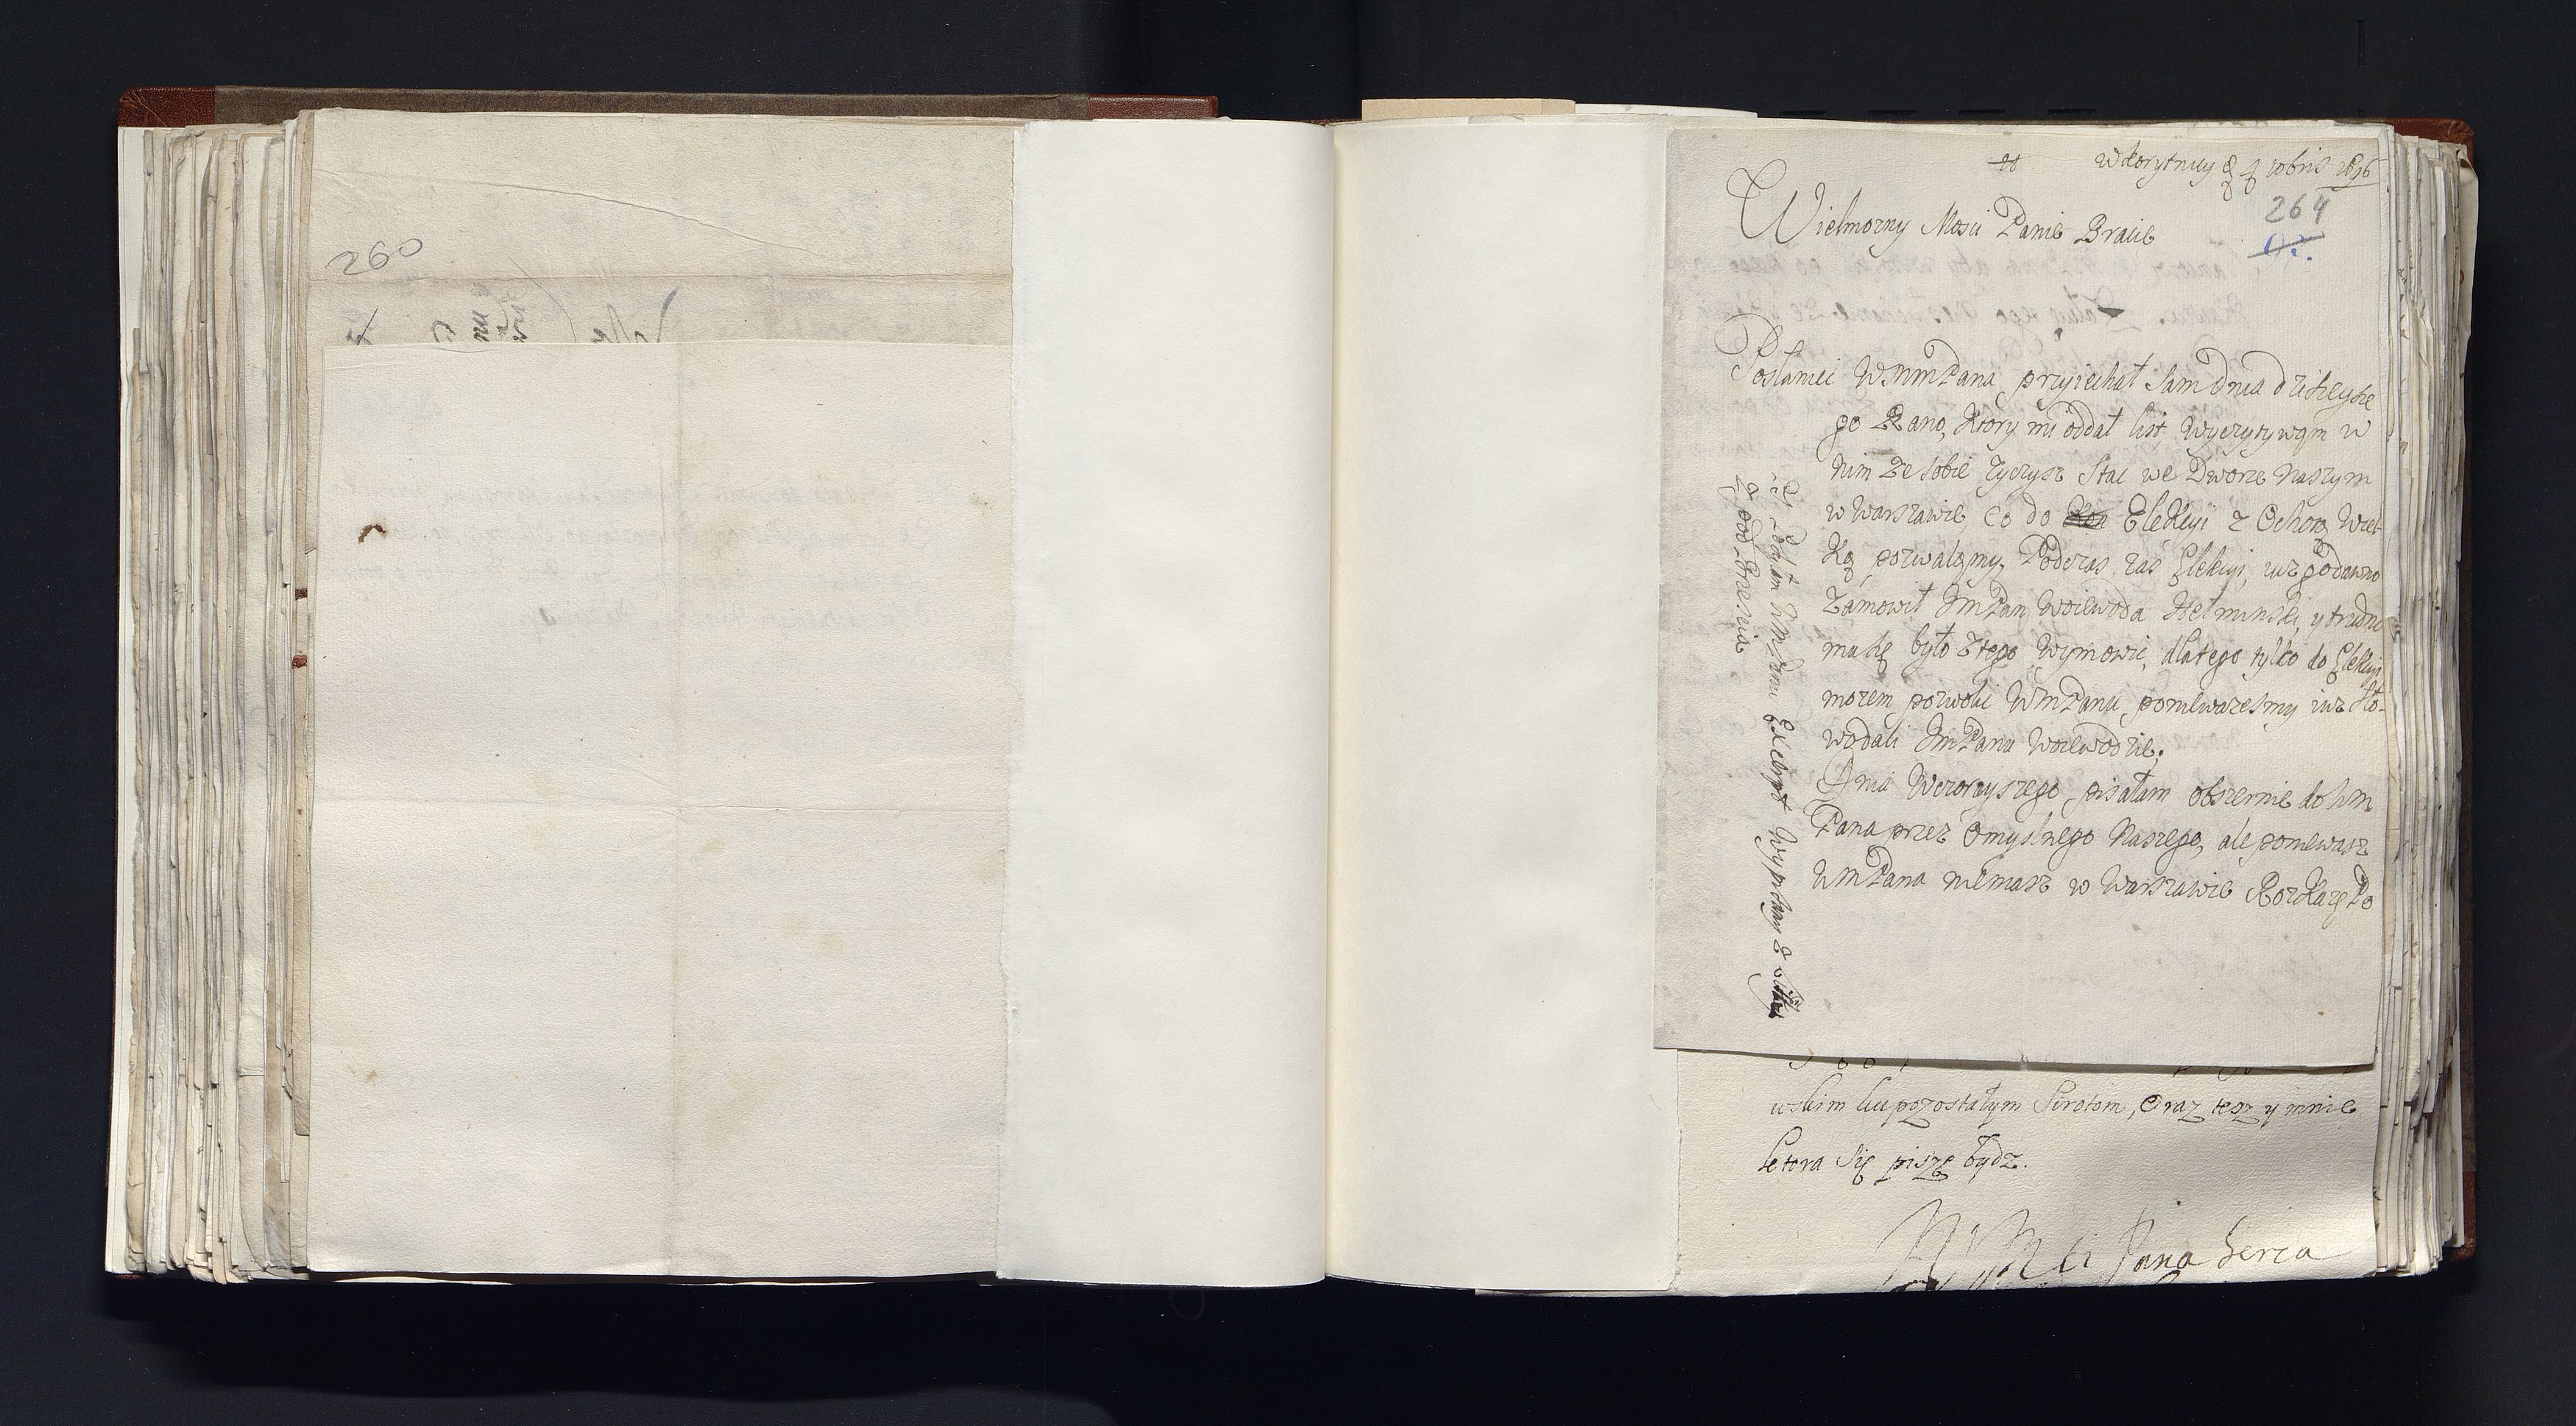 260
W Korytnicy d 4 10bris 1696
264
Wielmozny Mosci Panie Bracie
Poslaniec WMMPana przyiechał sam dnia dzisieysze
go Rano, Ktory mi oddał list, wyczytywam w
nim ze sobie zyczysz stac we Dworze Naszym
w Warszawie, co do Elekcyi z Ochotą Wiel-
ką pozwalamy, Podczas zas Elekcyi, iuz
zamowił ImPan Woiewoda Hełminski, y trudno
mu się było z tego wymowic, dlatego tylko do Elekcyi
mozem pozwolic WmPanu, poniewazesmy iuz sło-
wo dali ImPanu Woiewodzie.
Dnia Wczorayszego pisałam obszernie do Wm
Pana przez Omyslnego Naszego, ale poniewasz
WmPana niemasz w Warszawie Rozkazę Po
wskim pozostałym Sirotom, Oraz tesz y mnie
ktora się piszę bydz.
WMMci Pana